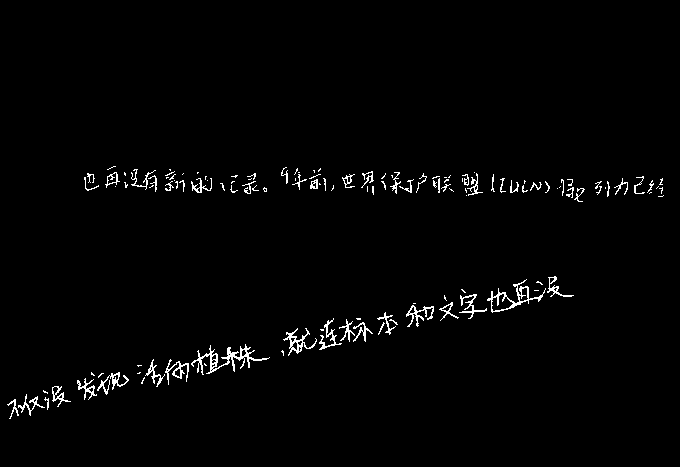 也再没有新的记录。9年前,世界保护联盟(IUCN)将它列为已经
不仅没发现活的植株,就连标本和文字也再没